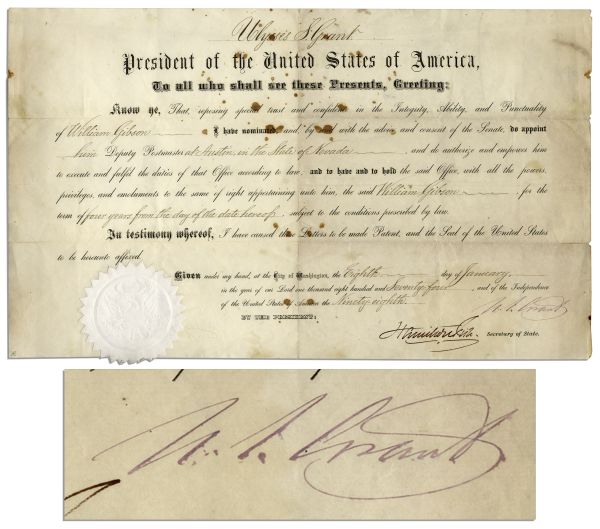 Ulysses S Grant
President of the United States of America,
To all who shall see these Presents, Greeting:
Know ye, That, reposing special trust and confidence in the Integrity, Ability, and Punctuality
of William Gibson I have nominated, and by and with the advice and consent of the Senate, do appoint
him Deputy Postmaster at Austin, in the State of Nevada and do authorize and empower him
to execute and fulfil the duties of that Office according to law, and to have and to hold the said Office, with all the powers,
privileges, and emoluments to the same of right appertaining unto him, the said William Gibson, for the
term of four years from the day of the date hereof, subject to the conditions prescribed by law.
In testimony whereof, I have caused these Letters to be made Patent, and the Seal of the United States
to be hereunto affixed.
Given under my hand, at the City of Washington, the Eighth day of January,
in the year of our Lord one thousand eight hundred and Seventy-four and of the Independence
of the United States of America the Ninety-eighth.
U. S. Grant
BY THE PRESIDENT:
Hamilton Fish Secretary of State.
U. S. Grant